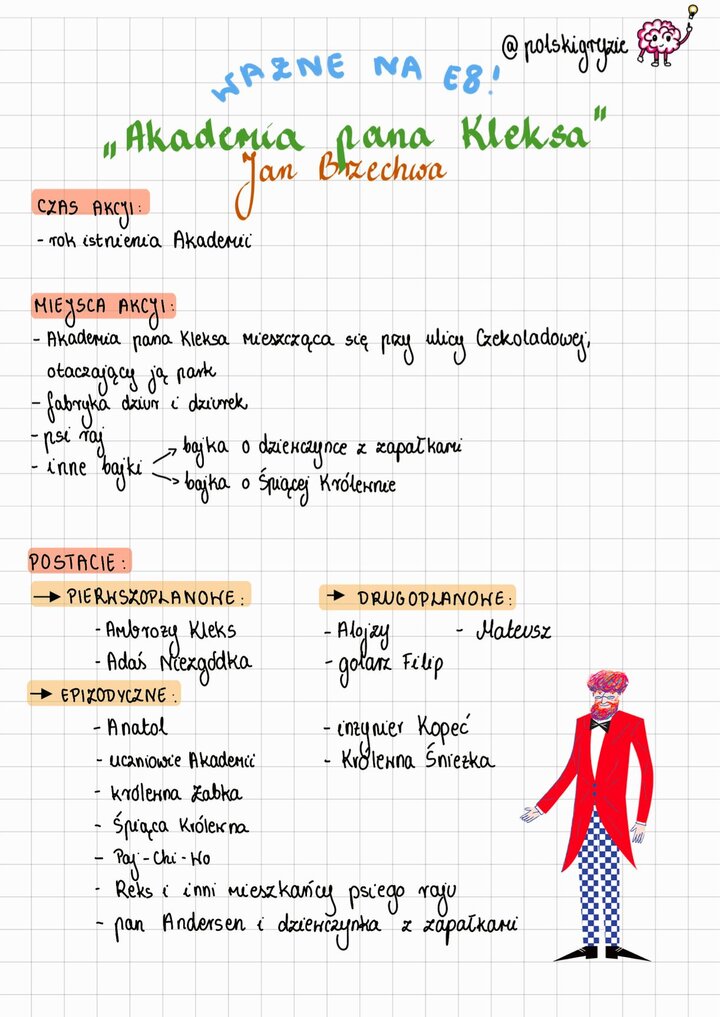 @polskigryzie
WAŻNE NA E8!
„Akademia pana Kleksa"
Jan Brzechwa
CZAS AKCJI:
- rok istnienia Akademii
MIEJSCA AKCJI:
- Akademia pana Kleksa mieszcząca się przy ulicy Czekoladowej,
otaczający ją park
- fabryka dziur i dziurek
- psi raj
- inne bajki → bajka o dziewczynce z zapałkami
→ bajka o Śpiącej Królewnie
POSTACIE:
→ PIERWSZOPLANOWE:
- Ambroży Kleks
- Adaś Niezgódka
→ DRUGOPLANOWE:
- Alojzy - Mateusz
- golarz Filip
→ EPIZODYCZNE:
- Anatol
- uczniowie Akademii
- królewna Żabka
- Śpiąca Królewna
- Paj-Chi-Wo
- Reks i inni mieszkańcy psiego raju
- pan Andersen i dziewczynka z zapałkami
- inżynier Kopeć
- Królewna Śnieżka